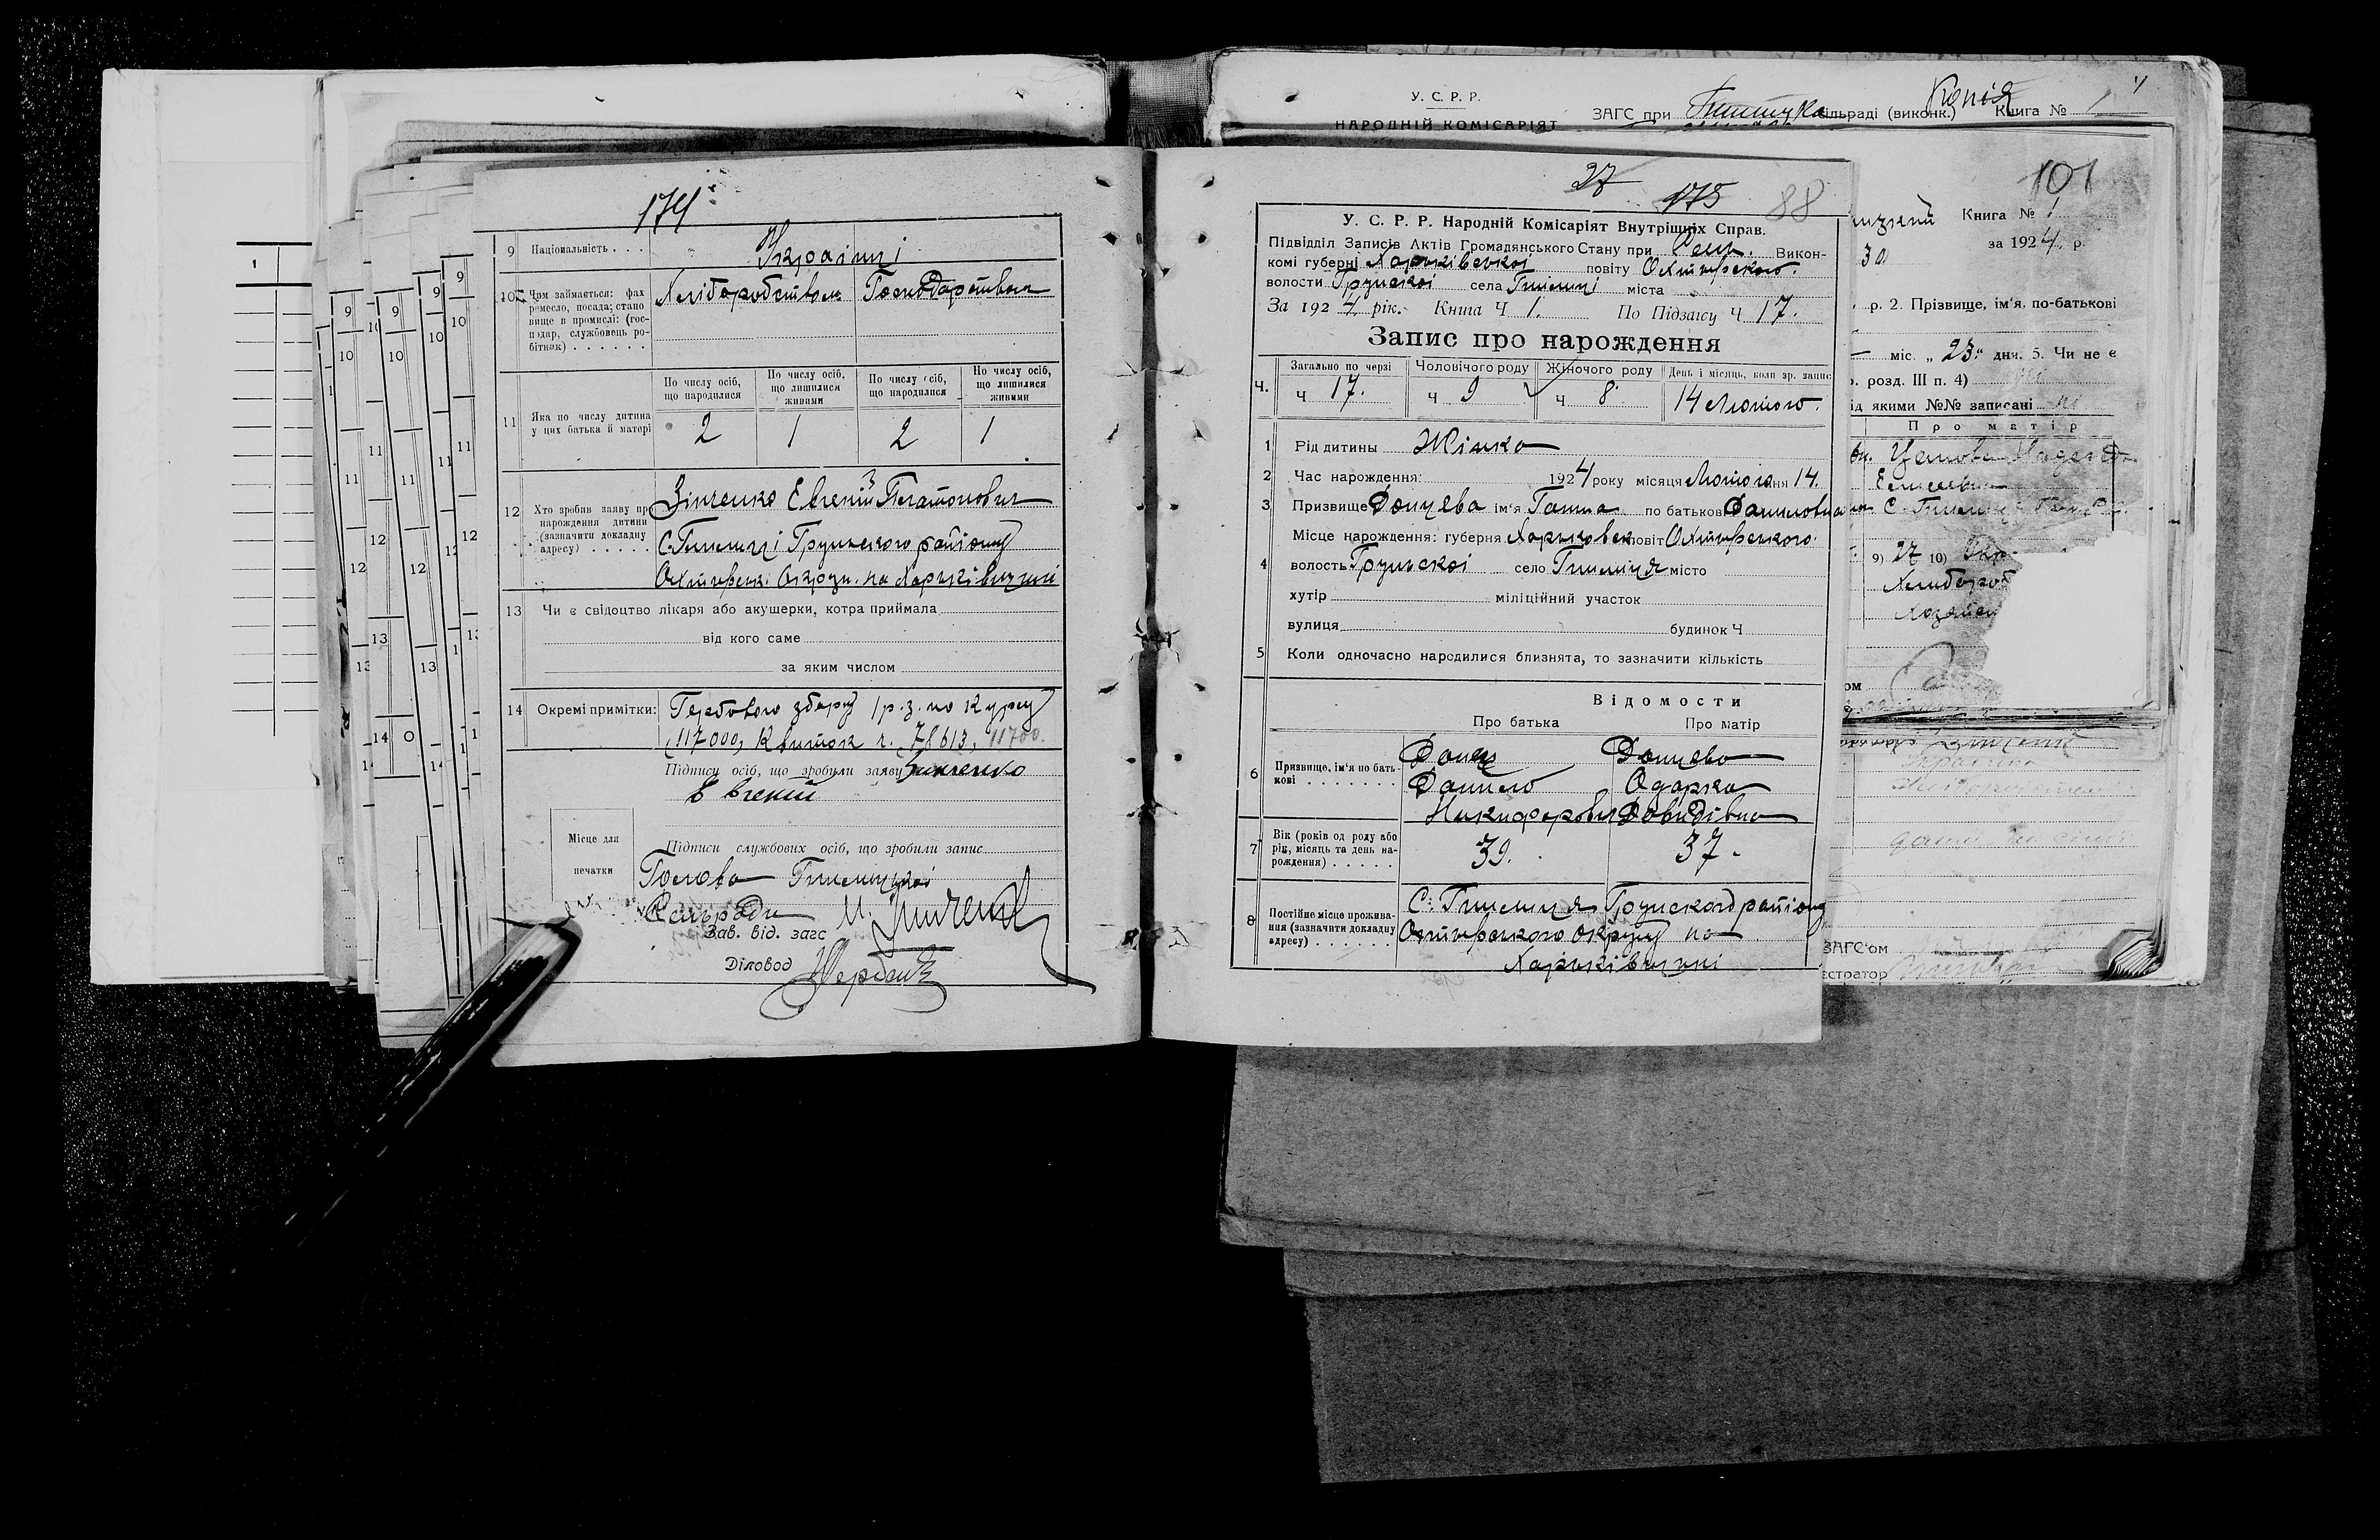 174
9 Національність . . . Українці
10 Чим займається: фах ремесло, посада; становище в промислі: (господар, службовець робітник) . . . . . . Хліборобством Господарством
11 Яка по числу дитина у цих батька й матері
По числу осіб, що народилися
По числу осіб, що лишилися живими
По числу осіб, що народилися
По числу осіб, що лишилися живими
2 1 2 1
12 Хто зробив заяву пр нарождення дитини (зазначити докладну адресу) . . . . .
Зінченко Евгеній Платонович
С. Гнилиці Грунського району
Охтирськ. Округи. на Харьківщині
13 Чи є свідоцтво лікаря або акушерки, котра приймала
від кого саме
за яким числом
14 Окремі примітки: Гербового збору 1 р. з. по курсу
117000, Квиток ч. 78613, 11700.
Підписи осіб, що зробили заяву Зинченко
Евгений
Місце для
печатки
Підписи службових осіб, що зробили запис
Голова
Сельради
Зав. від. загс
Діловод
У. С. Р. Р.
НАРОДНІЙ КОМІСАРІЯТ
ЗАГС при сільраді (виконк.) Книга № 1
Копія
27
175 88
У. С. Р. Р. Народній Комісаріят Внутрішніх Справ.
Підвідділ Записів Актів Громадянського Стану при Сель. Викон-
комі губерні Харьківської повіту Охтирського.
волости Грунської села Гнилиці міста
За 1924 рік. Книга Ч 1. По Підзагсу Ч 17.
Запис про народження
Ч. Загально по черзі Чоловічого роду Жіночого роду День і місяць, коли зр. запис
ч 17. ч 9 ч 8 14 Лютого.
1 Рід дитини Жінка
2 Час нарождення: 1924 року місяця Лютого дня 14.
3 Призвище Донцева ім'я Ганна по батькові Даниловна
Місце нарождення: губерня Харьковск повіт Охтирського.
4 волость Грунської село Гнилиця місто
хутір міліційний участок
вулиця будинок Ч
5 Коли одночасно народилися близнята, то зазначити кількість
Відомости
Про батька Про матір
6 Призвище, ім'я по батькові . . . . . . . .
Донец Донцева
Данило Одарка
Никифорович Давидівна
7 Вік (років од роду або рік, місяць та день нарождення) . . . . . 39. 37.
8 Постійне місце проживання (зазначити докладну адресу) . . . . . . .
С. Гнилиця Грунского району
Охтирського округу на
Харьківщині
101
Книга № 1
за 1924 р.
30
р. 2. Прізвище, ім'я, по-батькові
міс. „ 23 " дня. 5. Чи не є
розд. III п. 4)
ід якими №№ записані
Про матір
9) 27 10)
ЗАГС'ом